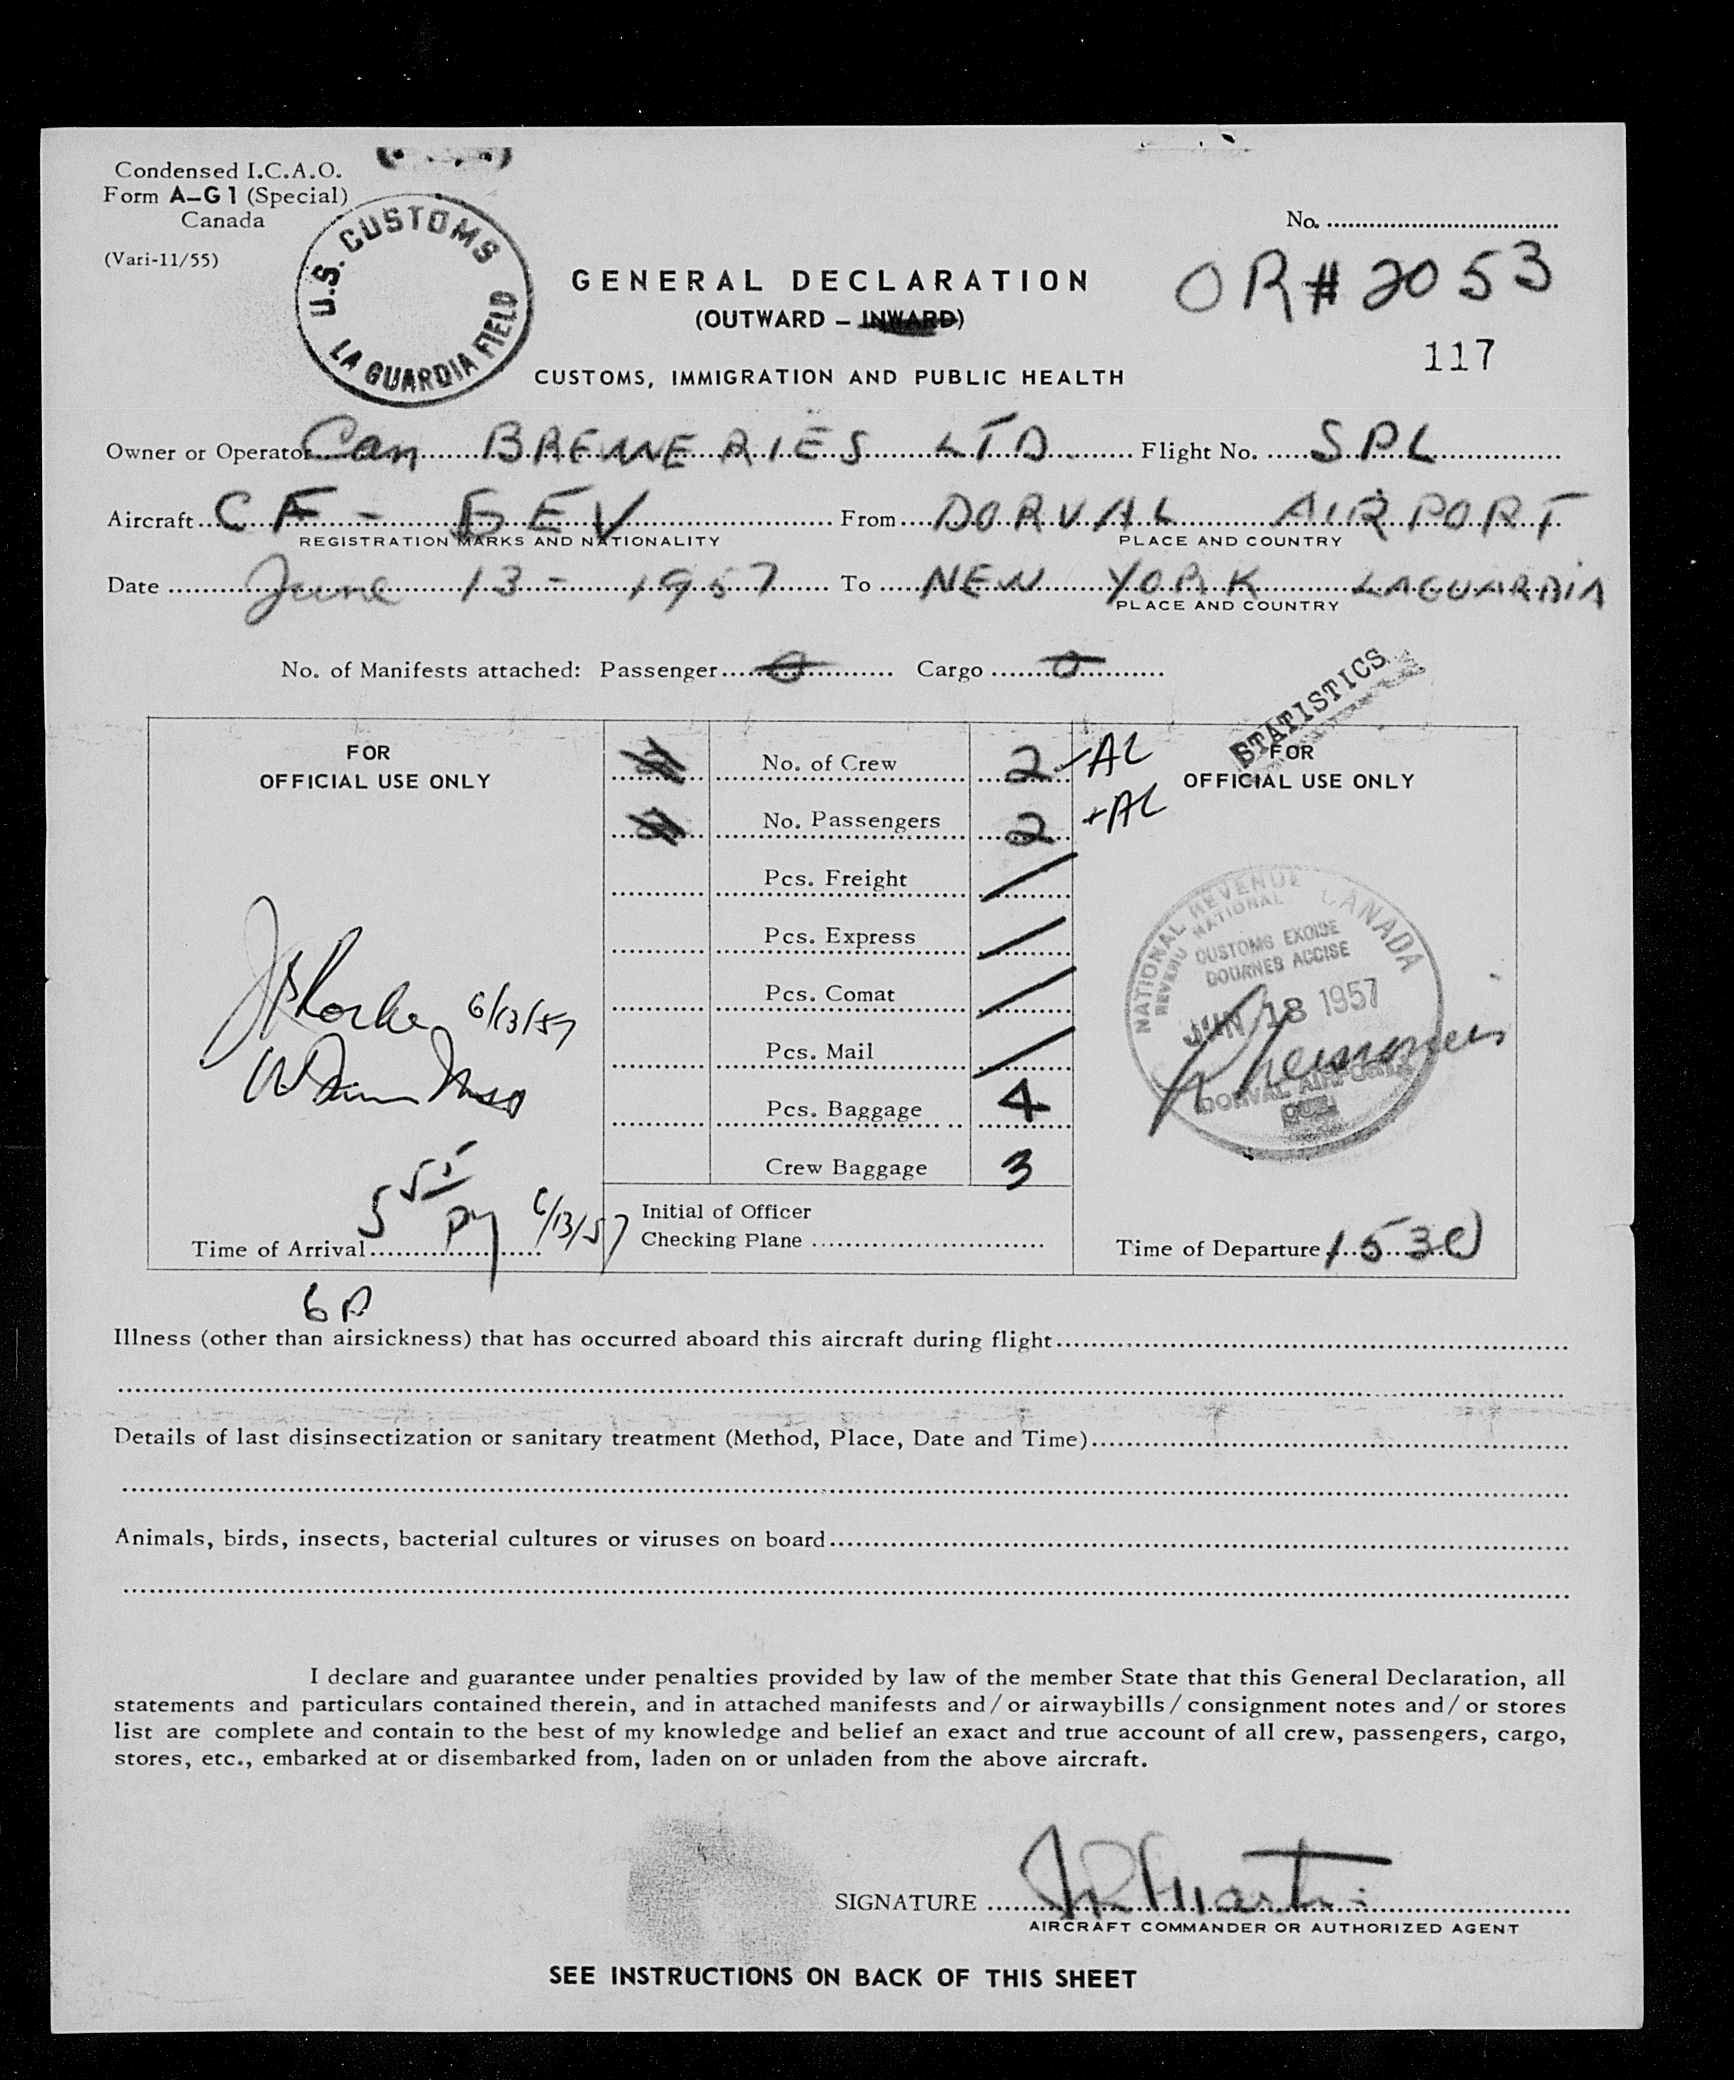 Condensed I.C.A.O.
Form A-G1 (Special)
Canada
(Vari-11/55)
U.S. CUSTOMS
LA GUARDIA FIELD
No.
OR# 2053
117
GENERAL DECLARATION
(OUTWARD – INWARD)
CUSTOMS, IMMIGRATION AND PUBLIC HEALTH
Owner or Operator Can BREWERIES LTD Flight No. SPL
Aircraft CF - GEV From DORVAL AIRPORT
REGISTRATION MARKS AND NATIONALITY PLACE AND COUNTRY
Date June 13 - 1957 To NEW YORK LAGUARDIA
PLACE AND COUNTRY
No. of Manifests attached: Passenger 0 Cargo 0
STATISTICS
FOR
OFFICIAL USE ONLY
2 No. of Crew 2 - AL
2 No. Passengers 2 + AL
Pcs. Freight /
Pcs. Express /
Pcs. Comat /
Pcs. Mail /
Pcs. Baggage 4
Crew Baggage 3
6/13/57
Time of Arrival 5 55 6/13/57
6 P
Initial of Officer
Checking Plane
FOR
OFFICIAL USE ONLY
NATIONAL REVENUE CANADA
REVENU NATIONAL
CUSTOMS EXCISE
DOUANES ACCISE
JUN 13 1957
DORVAL AIRPORT
QUE.
Time of Departure 1530
Illness (other than airsickness) that has occurred aboard this aircraft during flight
Details of last disinsectization or sanitary treatment (Method, Place, Date and Time)
Animals, birds, insects, bacterial cultures or viruses on board
I declare and guarantee under penalties provided by law of the member State that this General Declaration, all
statements and particulars contained therein, and in attached manifests and/or airwaybills/consignment notes and/or stores
list are complete and contain to the best of my knowledge and belief an exact and true account of all crew, passengers, cargo,
stores, etc., embarked at or disembarked from, laden on or unladen from the above aircraft.
SIGNATURE JR Martin
AIRCRAFT COMMANDER OR AUTHORIZED AGENT
SEE INSTRUCTIONS ON BACK OF THIS SHEET